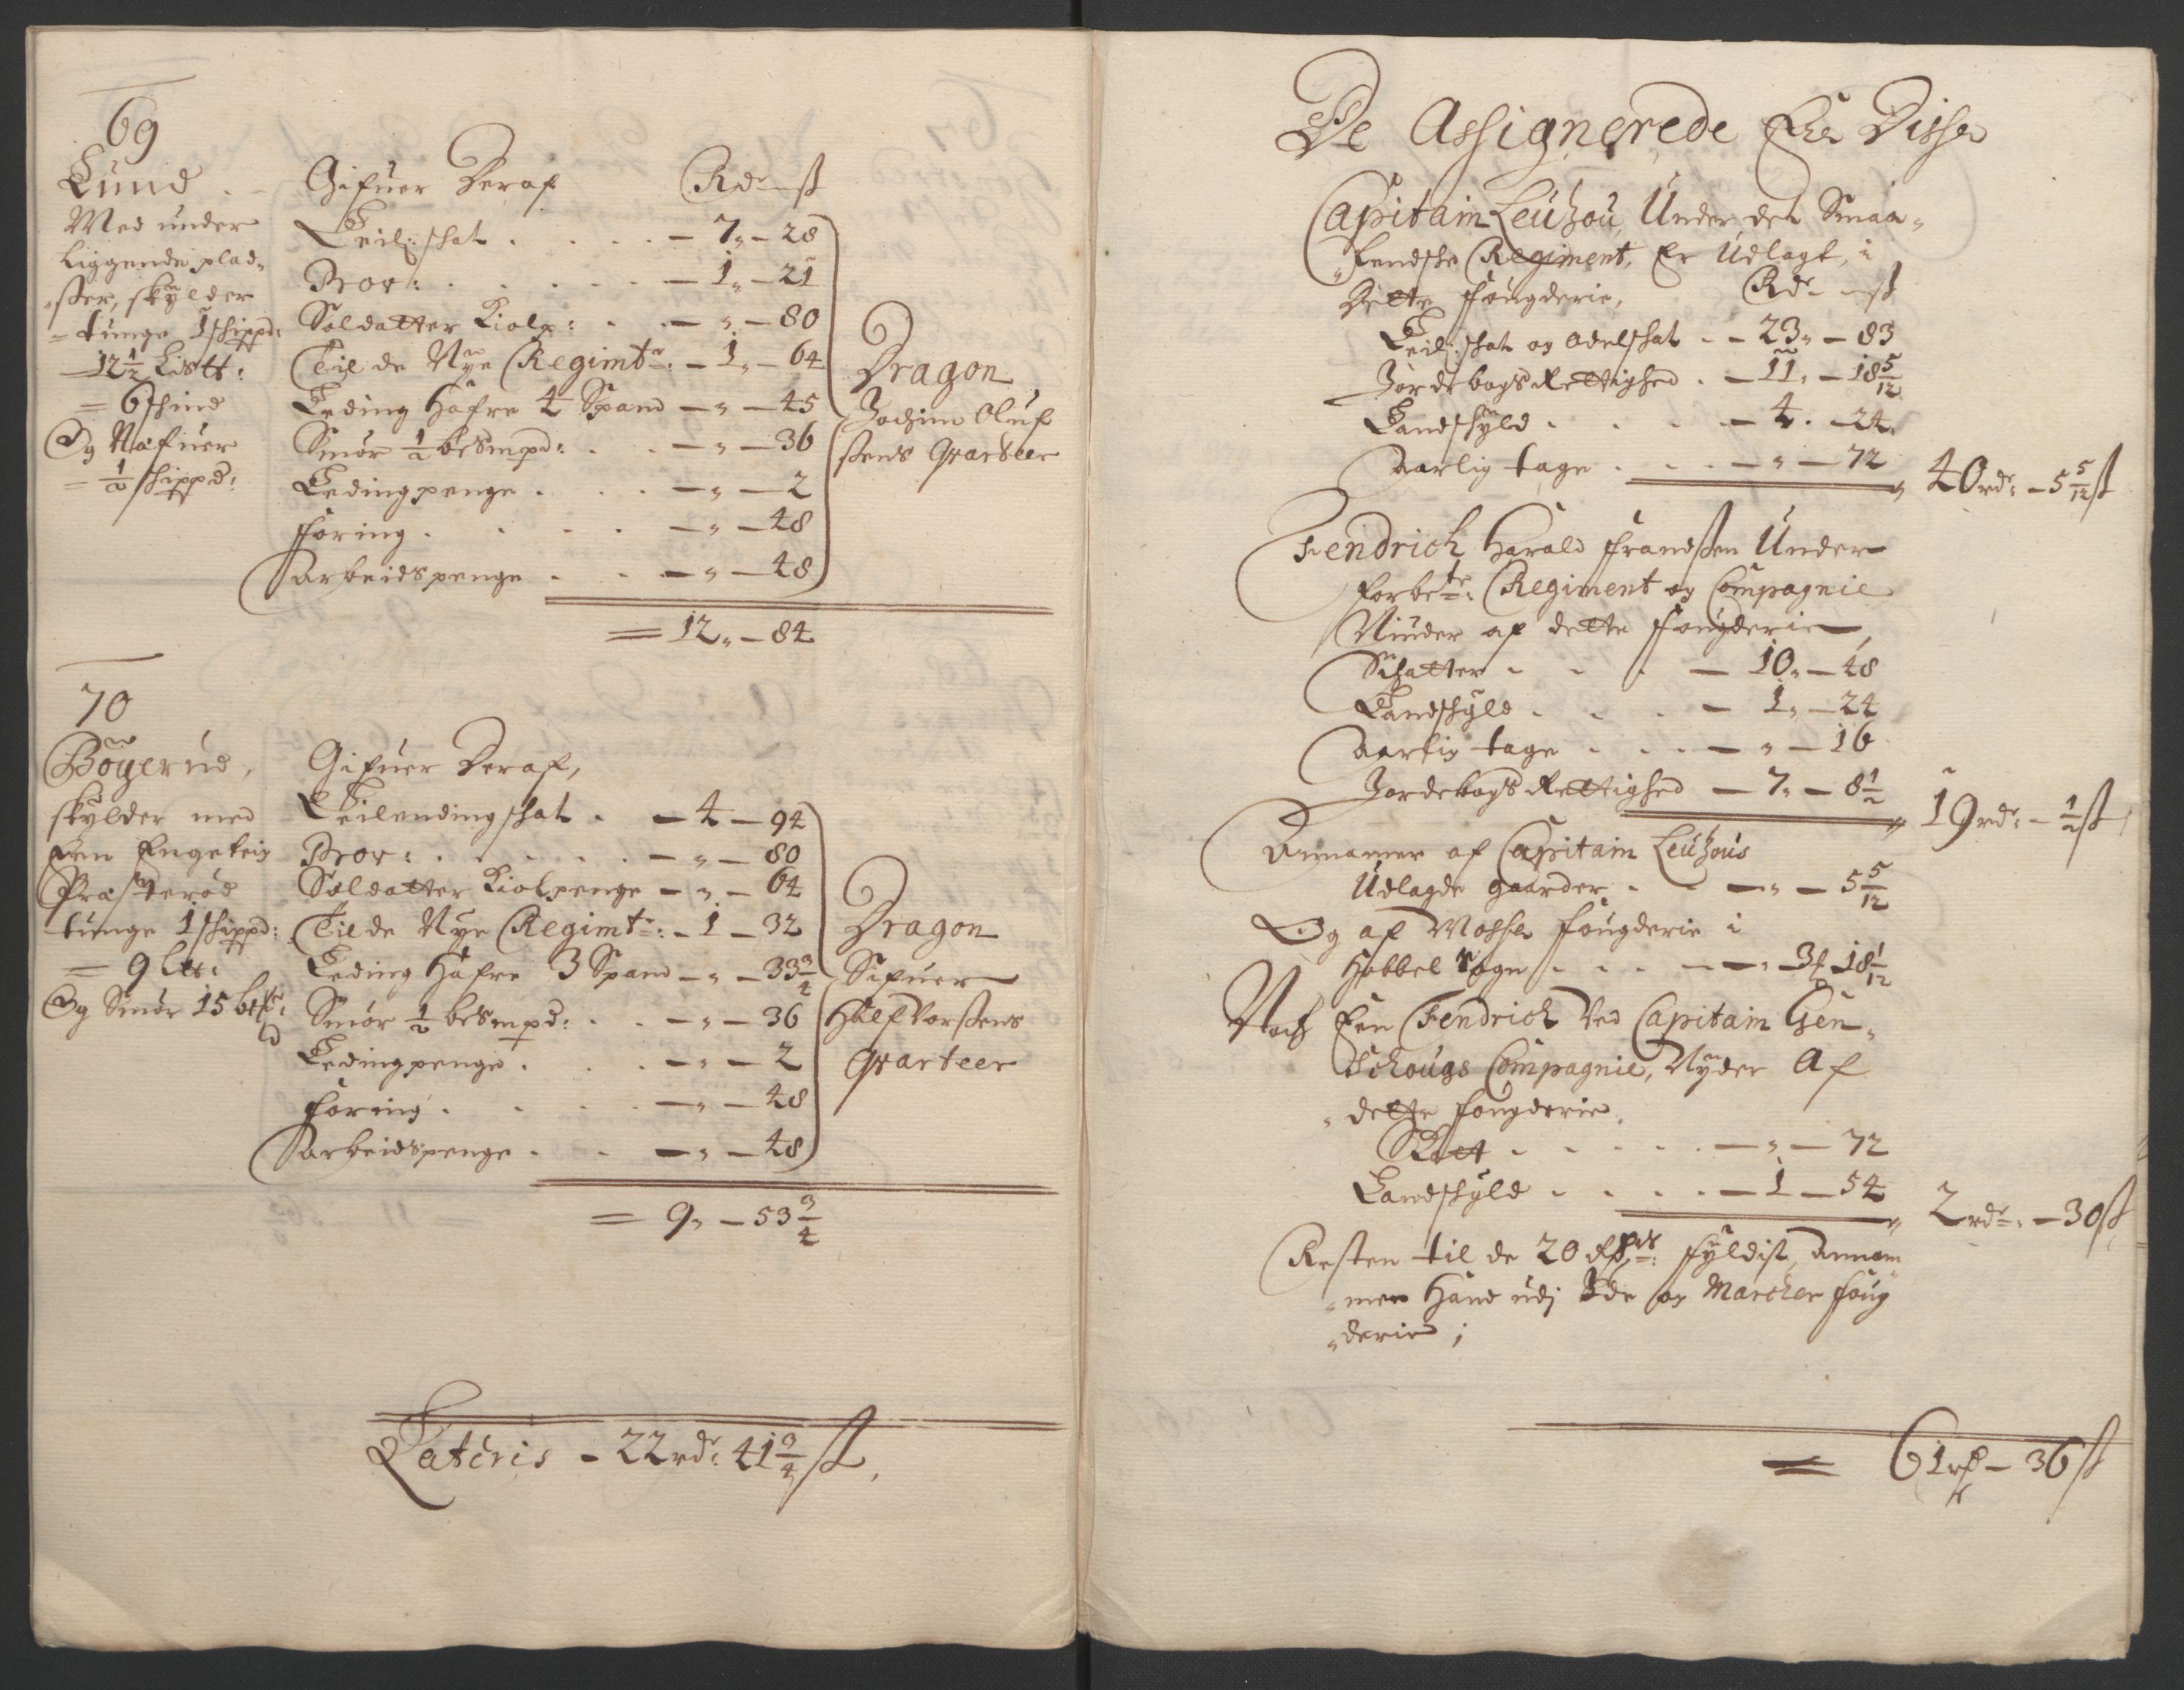 69
Lund
Med under
liggende plad-
-ßer, skÿlder
-tunge 1 skippd:
-12 1/2 Listt:
= 6 skind
Og Næfuer
= 1/2 skippd:
Gifuer Deraf Rdr ß
Leil: skat - 7 - 28
Prov: - 1 - 21
Soldatter Kiolp: - " - 80
Til de Nÿe Regimtr: - 1 - 64
Leding Hafre 4 Spand - " - 45
Smør 1/2 besmpd: - " - 36
Ledingpenge - " - 2
foring - " - 48
Arbeidspenge - " - 48
Dragon
Jochim Oluf
ßens Qvarteer
= 12 - 84
70
Böÿerud,
skÿlder med
Een Engeteig
Præsterød
tunge 1 skippd:
= 9 Ltt:
Og Smør 15
Gifuer Deraf,
Leilendingskat - 4 - 94
Prov: - " - 80
Soldatter Kiolpenge - " - 64
Til de Nÿe Regimtr: - 1 - 32
Leding Hafre 3 Spand - " - 33 3/4
Smør 1/2 besmpd: - " - 36
Ledingpenge - " - 2
foring - " - 48
Arbeidspenge - " - 48
Dragon
Sifuer
Halfvorßens
Qvarteer
= 9 - 53 3/4
Lateris - 22 rdr: 41 3/4 ß,
De Assignerede Ere Disse
Capitain Leützou, Under det Smaa-
-lendske Regiment, Er Udlagt, i
Dette fougderie, Rdr ß
Leil: skat og Odelskat - 23 - 83
Jordebogs Rettighed - 11 - 18 5/12
Landskÿld - 4 - 24
Aarlig tage - " - 72
40 rdr: - 5 5/12 ß
Fendrich Harald frandßen Under
forbete: Regiment og Compagnie
Niuder af dette fougderie,
Schatter - 10 - 48
Landskÿld - 1 - 24
Aarlig tage - " - 16
Jordebogs Rettighed - 7 - 8 1/2
19 rdr: - 1/2 ß
Annamer af Capitain Leützous
Udlagde gaarder - " - 5 5/12
Og af Mosse fougderie i
Hobbel Sogn - 34 - 18 1/12
Noch Een Fendrich Ved Capitain Gen-
Schougs Compagnie, Nÿder Af
-dette fougderie,
Skatt - " - 72
Landskÿld - 1 - 54
2 rdr: - 30 ß
Resten til de 20 fÿldist, annam
-mer Hand udj Ide og Marcker foug
-derie;
= 61 rdr - 36 ß